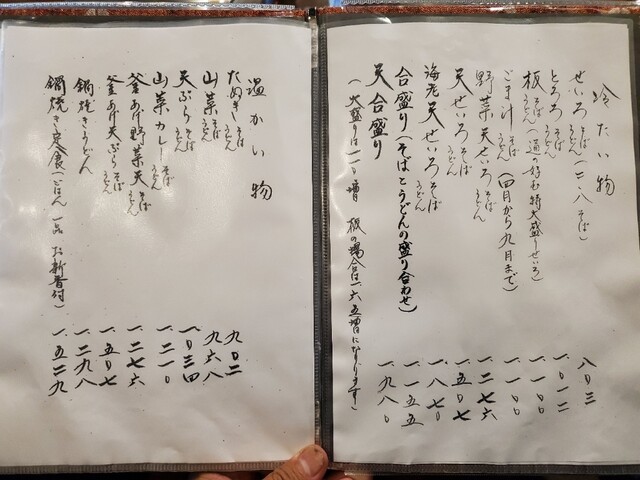 冷たい物
せいろ そば うどん (二・八そば) 八〇三
とろろ そば うどん 一、〇一二
板 そば うどん (道の好む特大盛りせいろ) 一、一〇〇
ごま汁 そば うどん (四月から九月まで) 一、一〇〇
野菜天せいろ そば うどん 一、二七六
天せいろ そば うどん 一、五〇七
海老天せいろ そば うどん 一、八七〇
合盛り (そばとうどんの盛り合わせ) 一、一五五
天合盛り 一、九八〇
(大盛りは一一〇増 板の場合は一六五増になります)
温かい物
たぬき そば うどん 九〇二
山菜 そば うどん 九六八
天ぷら そば うどん 一、〇三四
山菜カレー そば うどん 一、二一〇
釜あげ野菜天 そば うどん 一、二七六
釜あげ天ぷら そば うどん 一、五〇七
鍋焼きうどん 一、二九八
鍋焼き定食 (ごはん 一品 お新香付) 一、五二九